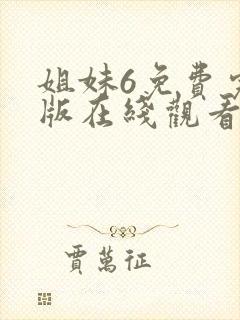 姐妹6免費
版在綫觀看
賈萬征